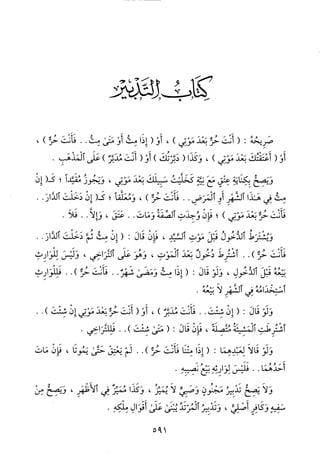 كتاب التدبير
صريحه : ( أنت حر بعد موتي ) ، أو ( إذا مت أو متى مت .. فأنت حر ) ،
أو ( أعتقتك بعد موتي ) ، وكذا ( دبرتك ) أو ( أنت مدبر ) على المذهب .
ويصح بكناية عتق مع نية كـ( خليت سبيلك بعد موتي ) ، ويجوز مقيدا ؛ كـ( إن
مت في هذا الشهر أو المرض .. فأنت حر ) ، ومعلقا ؛ كـ( إن دخلت الدار ..
فأنت حر بعد موتي ) ؛ فإن وجدت الصفة ومات .. عتق ، وإلا .. فلا .
ويشترط الدخول قبل موت السيد ، فإن قال : ( إن مت ثم دخلت الدار ..
فأنت حر ) .. اشترط دخول بعد الموت ، وهو على التراخي ، وليس للوارث
بيعه قبل الدخول ، ولو قال : ( إذا مت ومضى شهر .. فأنت حر ) .. فللوارث
استخدامه في الشهر لا بيعه .
ولو قال : ( إن شئت .. فأنت مدبر ) ، أو ( أنت حر بعد موتي إن شئت ) ..
اشترطت المشيئة متصلة ، فإن قال : ( متى شئت ) .. فللتراخي .
ولو قالا لعبدهما : ( إذا متنا فأنت حر ) .. لم يعتق حتى يموتا ، فإن مات
أحدهما .. فليس لوارثه بيع نصيبه .
ولا يصح تدبير مجنون وصبي لا يميز ، وكذا مميز في الأظهر ، ويصح من
سفيه وكافر أصلي ، وتدبير المرتد يبنى على أقوال ملكه .
٥٩١